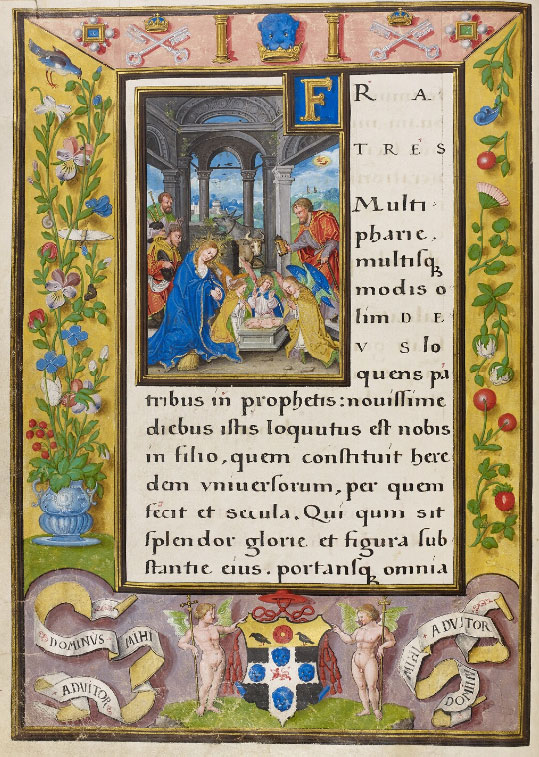 F R A
T R E S
Multi-
pharie,
multisq
modis o
lim D E
V S lo
quens pa
tribus in prophetis: nouissime
diebus istis loquutus est nobis
in filio, quem constituit here
dem vniuersorum, per quem
fecit et secula. Qui qum sit
splendor glorie et figura sub
stantie eius. portansq omnia
DOMINVS MIHI
ADVITOR
MIHI ADVITOR
DOMIN